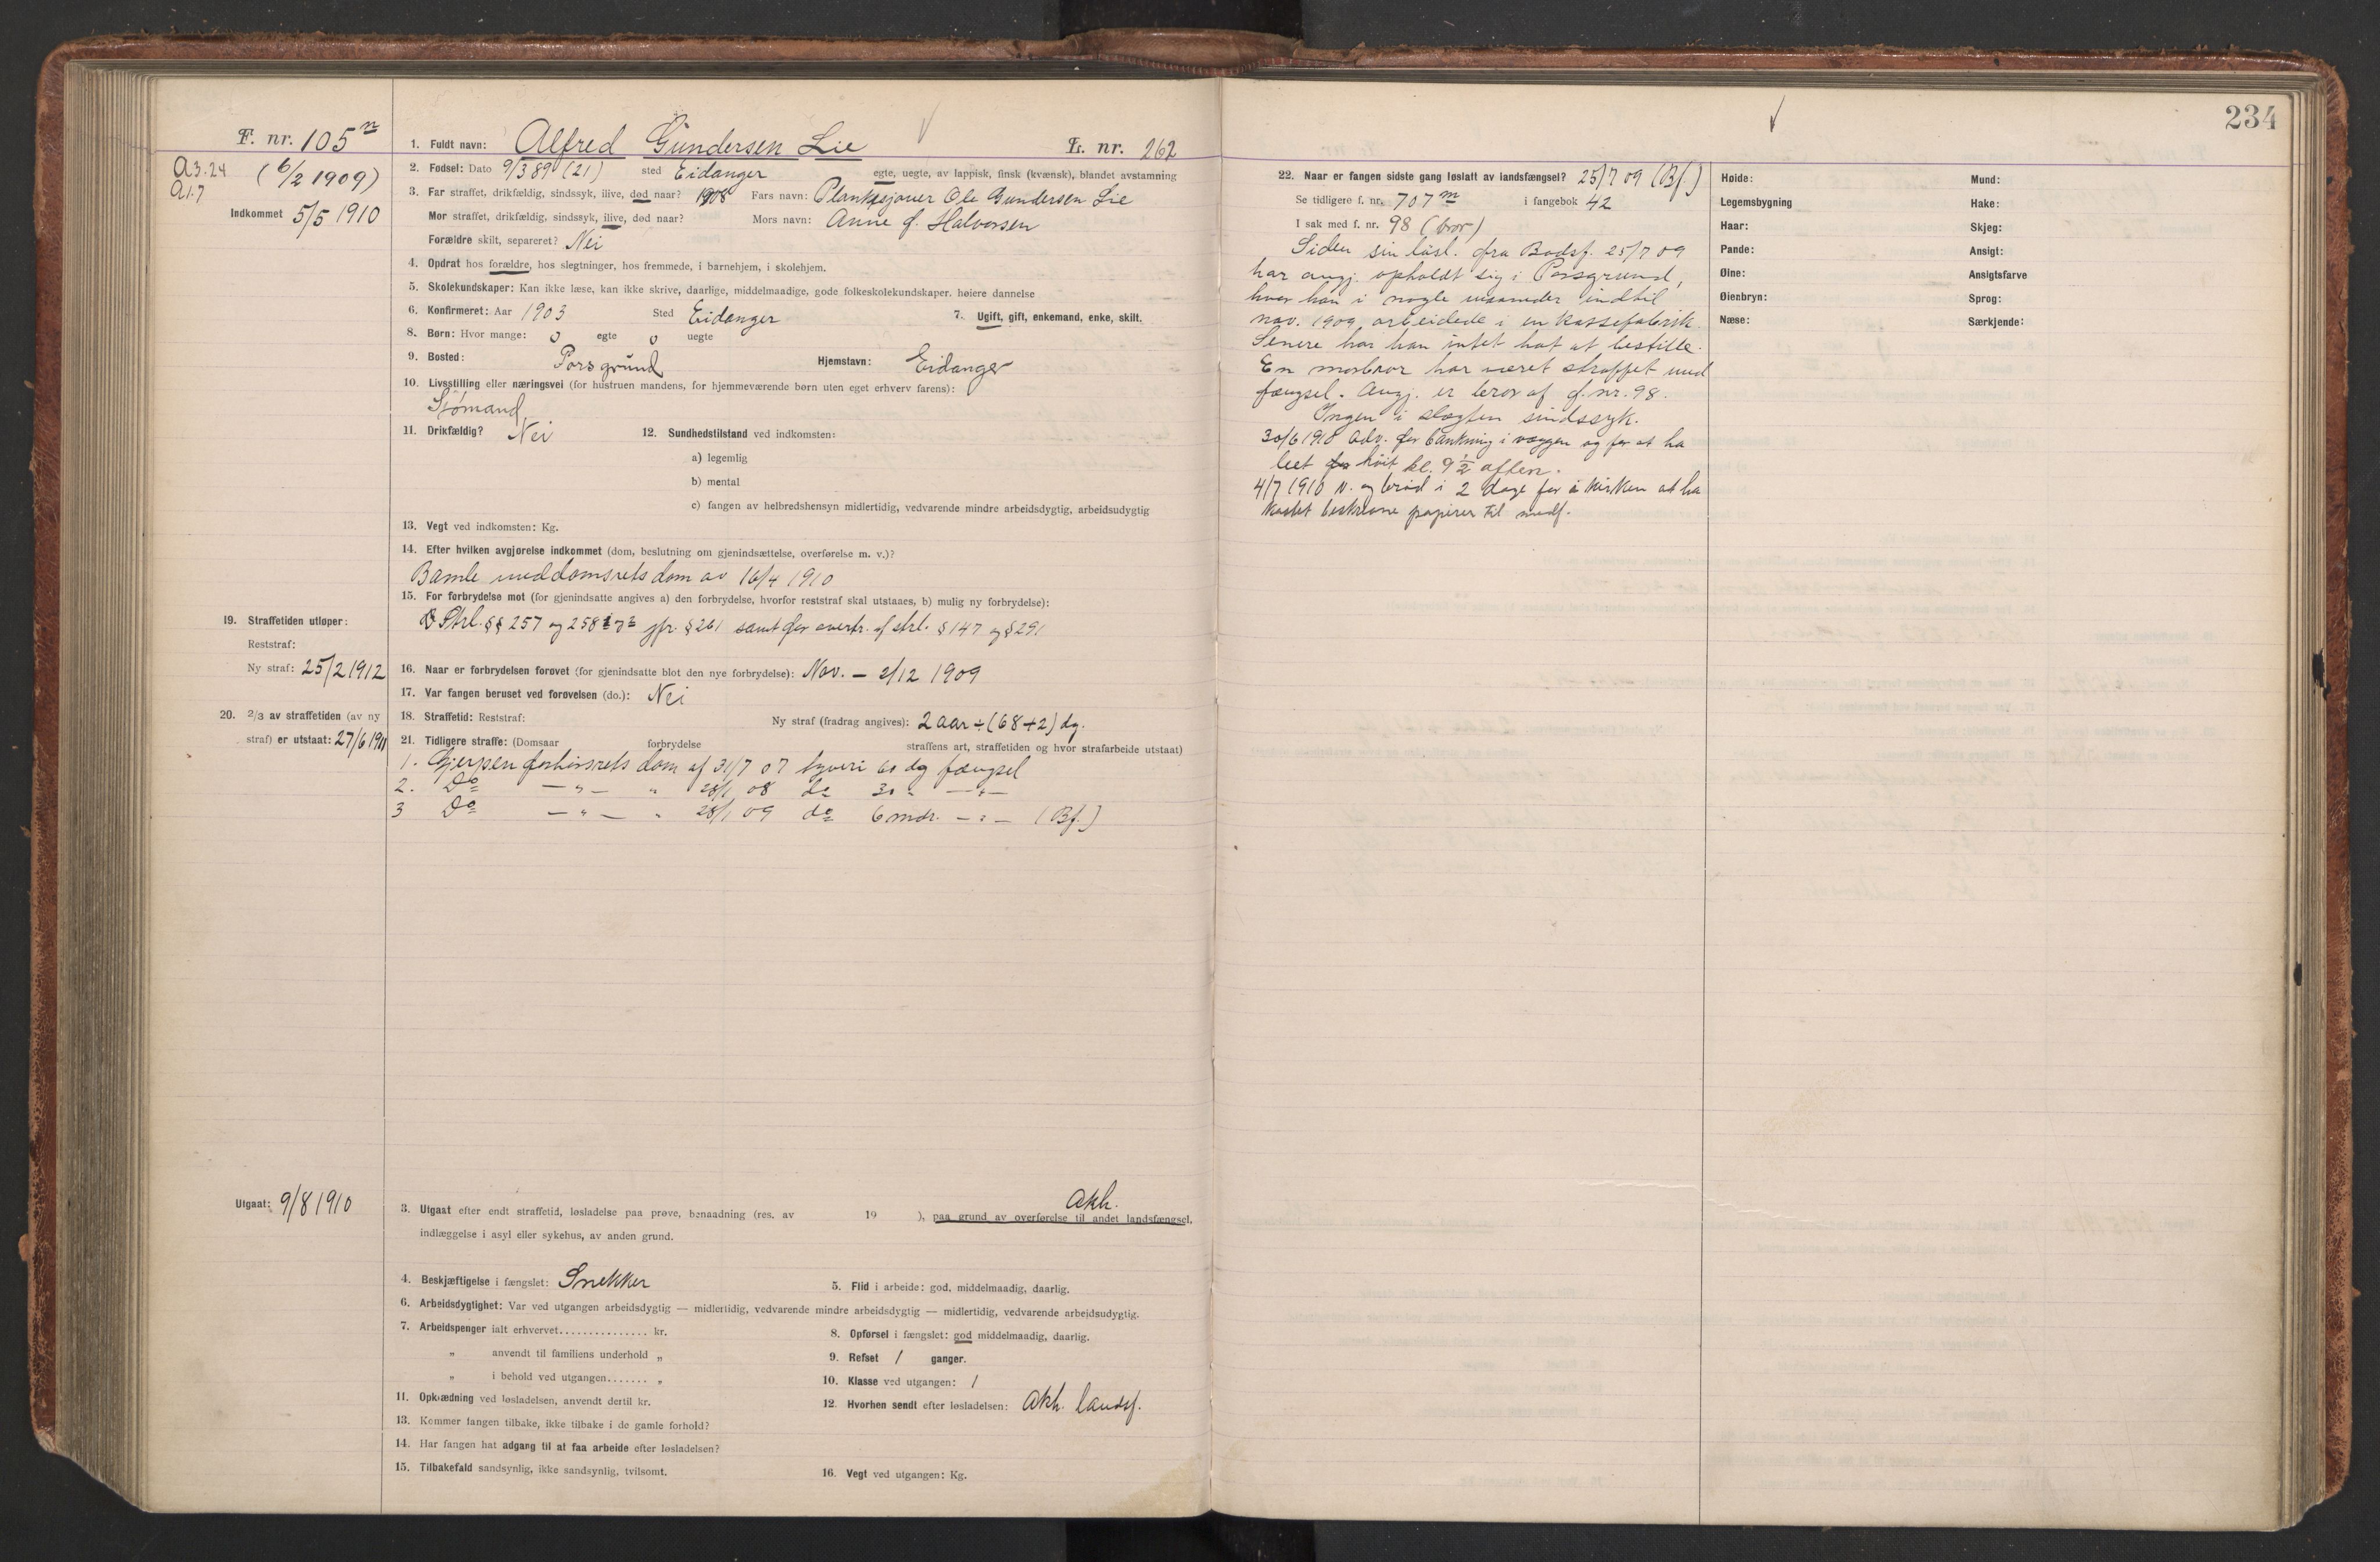 234
F. nr. 105 n
A 3.24
A 1.7
(6/2 1909)
Indkommet 5/5 1910
1. Fuldt navn: Alfred Gundersen Lie L. nr. 262
2. Fødsel: Dato 9/3 89 (21) sted Eidanger egte, uegte, av lappisk, finsk (kvænsk), blandet avstamning
3. Far straffet, drikfældig, sindssyk, ilive, død naar? 1908 Fars navn: Plankesjouer Ole Gundersen Lie
Mor straffet, drikfældig, sindssyk, ilive, død naar? Mors navn: Anne f. Halvorsen
Forældre skilt, separeret? Nei
4. Opdrat hos forældre, hos slegtninger, hos fremmede, i barnehjem, i skolehjem.
5. Skolekundskaper: Kan ikke læse, kan ikke skrive, daarlige, middelmaadige, gode folkeskolekundskaper. høiere dannelse
6. Konfirmeret: Aar 1903 Sted Eidanger 7. Ugift, gift, enkemand, enke, skilt.
8. Børn: Hvor mange: 0 egte 0 uegte
9. Bosted: Porsgrund Hjemstavn: Eidanger
10. Livsstilling eller næringsvei (for hustruen mandens, for hjemmeværende børn uten eget erhverv farens):
Sjømand
11. Drikfældig? Nei 12. Sundhedstilstand ved indkomsten:
a) legemlig
b) mental
c) fangen av helbredshensyn midlertidig, vedvarende mindre arbeidsdygtig, arbeidsudygtig
13. Vegt ved indkomsten: Kg.
14. Efter hvilken avgjørelse indkommet (dom, beslutning om gjenindsættelse, overførelse m. v.)?
Bamle meddomsrets dom av 16/4 1910
15. For forbrydelse mot (for gjenindsatte angives a) den forbrydelse, hvorfor reststraf skal utstaaes, b) mulig ny forbrydelse):
Strl. §§ 257 og 258 jfr. § 261 samt for overtr. af strl. § 147 og § 291
19. Straffetiden utløper:
Reststraf:
Ny straf: 25/2 1912
16. Naar er forbrydelsen forøvet (for gjenindsatte blot den nye forbrydelse): Nov. – 2/12 1909
17. Var fangen beruset ved forøvelsen (do.): Nei
20. 2/3 av straffetiden (av ny
straf) er utstaat: 27/6 1911
18. Straffetid: Reststraf: Ny straf (fradrag angives): 2 aar ÷ (68+2) dg.
21. Tidligere straffe: (Domsaar forbrydelse straffens art, straffetiden og hvor strafarbeide utstaat)
1. Gjerpen forhørsrets dom af 31/7 07 tyveri 60 dg fængsel
2. Do — " — " 28/1 08 do 30 " — " —
3 Do — " — " 28/1 09 do 6 mdr. — " — (Bf.)
Utgaat: 9/8 1910
Akh.
3. Utgaat efter endt straffetid, løsladelse paa prøve, benaadning (res. av 19 ), paa grund av overførelse til andet landsfængsel,
indlæggelse i asyl eller sykehus, av anden grund.
4. Beskjæftigelse i fængslet: Snekker 5. Flid i arbeide: god, middelmaadig, daarlig.
6. Arbeidsdygtighet: Var ved utgangen arbeidsdygtig — midlertidig, vedvarende mindre arbeidsdygtig — midlertidig, vedvarende arbeidsudygtig.
7. Arbeidspenger ialt erhvervet............... kr. 8. Opførsel i fængslet: god middelmaadig, daarlig.
„ anvendt til familiens underhold „ 9. Refset 1 ganger.
„ i behold ved utgangen....... „ 10. Klasse ved utgangen: 1
11. Opklædning ved løsladelsen, anvendt dertil kr. 12. Hvorhen sendt efter løsladelsen: Akh. landsf.
13. Kommer fangen tilbake, ikke tilbake i de gamle forhold?
14. Har fangen hat adgang til at faa arbeide efter løsladelsen?
15. Tilbakefald sandsynlig, ikke sandsynlig, tvilsomt. 16. Vegt ved utgangen: Kg.
22. Naar er fangen sidste gang løslatt av landsfængsel? 25/7 09 (Bf.)
Se tidligere f. nr. 707 m i fangebok 42
I sak med f. nr. 98 (bror)
Siden sin løsl. fra Bodsf. 25/7 09
har angj. opholdt sig i Porsgrund,
hvor han i nogle maaneder indtil
nov. 1909 arbeidede i en kassefabrik.
Senere har han intet hat at bestille.
En morbror har været straffet med
fængsel. Angj. er bror af f. nr. 98.
Ingen i slægten sindssyk.
30/6 1910 Adv. for bankning i væggen og for at ha
leet høit kl. 9 1/2 aften.
4/7 1910 V. og brød i 2 dage for i kirken at ha
kastet beskrevne papirer til medf.
Høide: Mund:
Legemsbygning Hake:
Haar: Skjeg:
Pande: Ansigt:
Øine: Ansigtsfarve
Øienbryn: Sprog:
Næse: Særkjende: